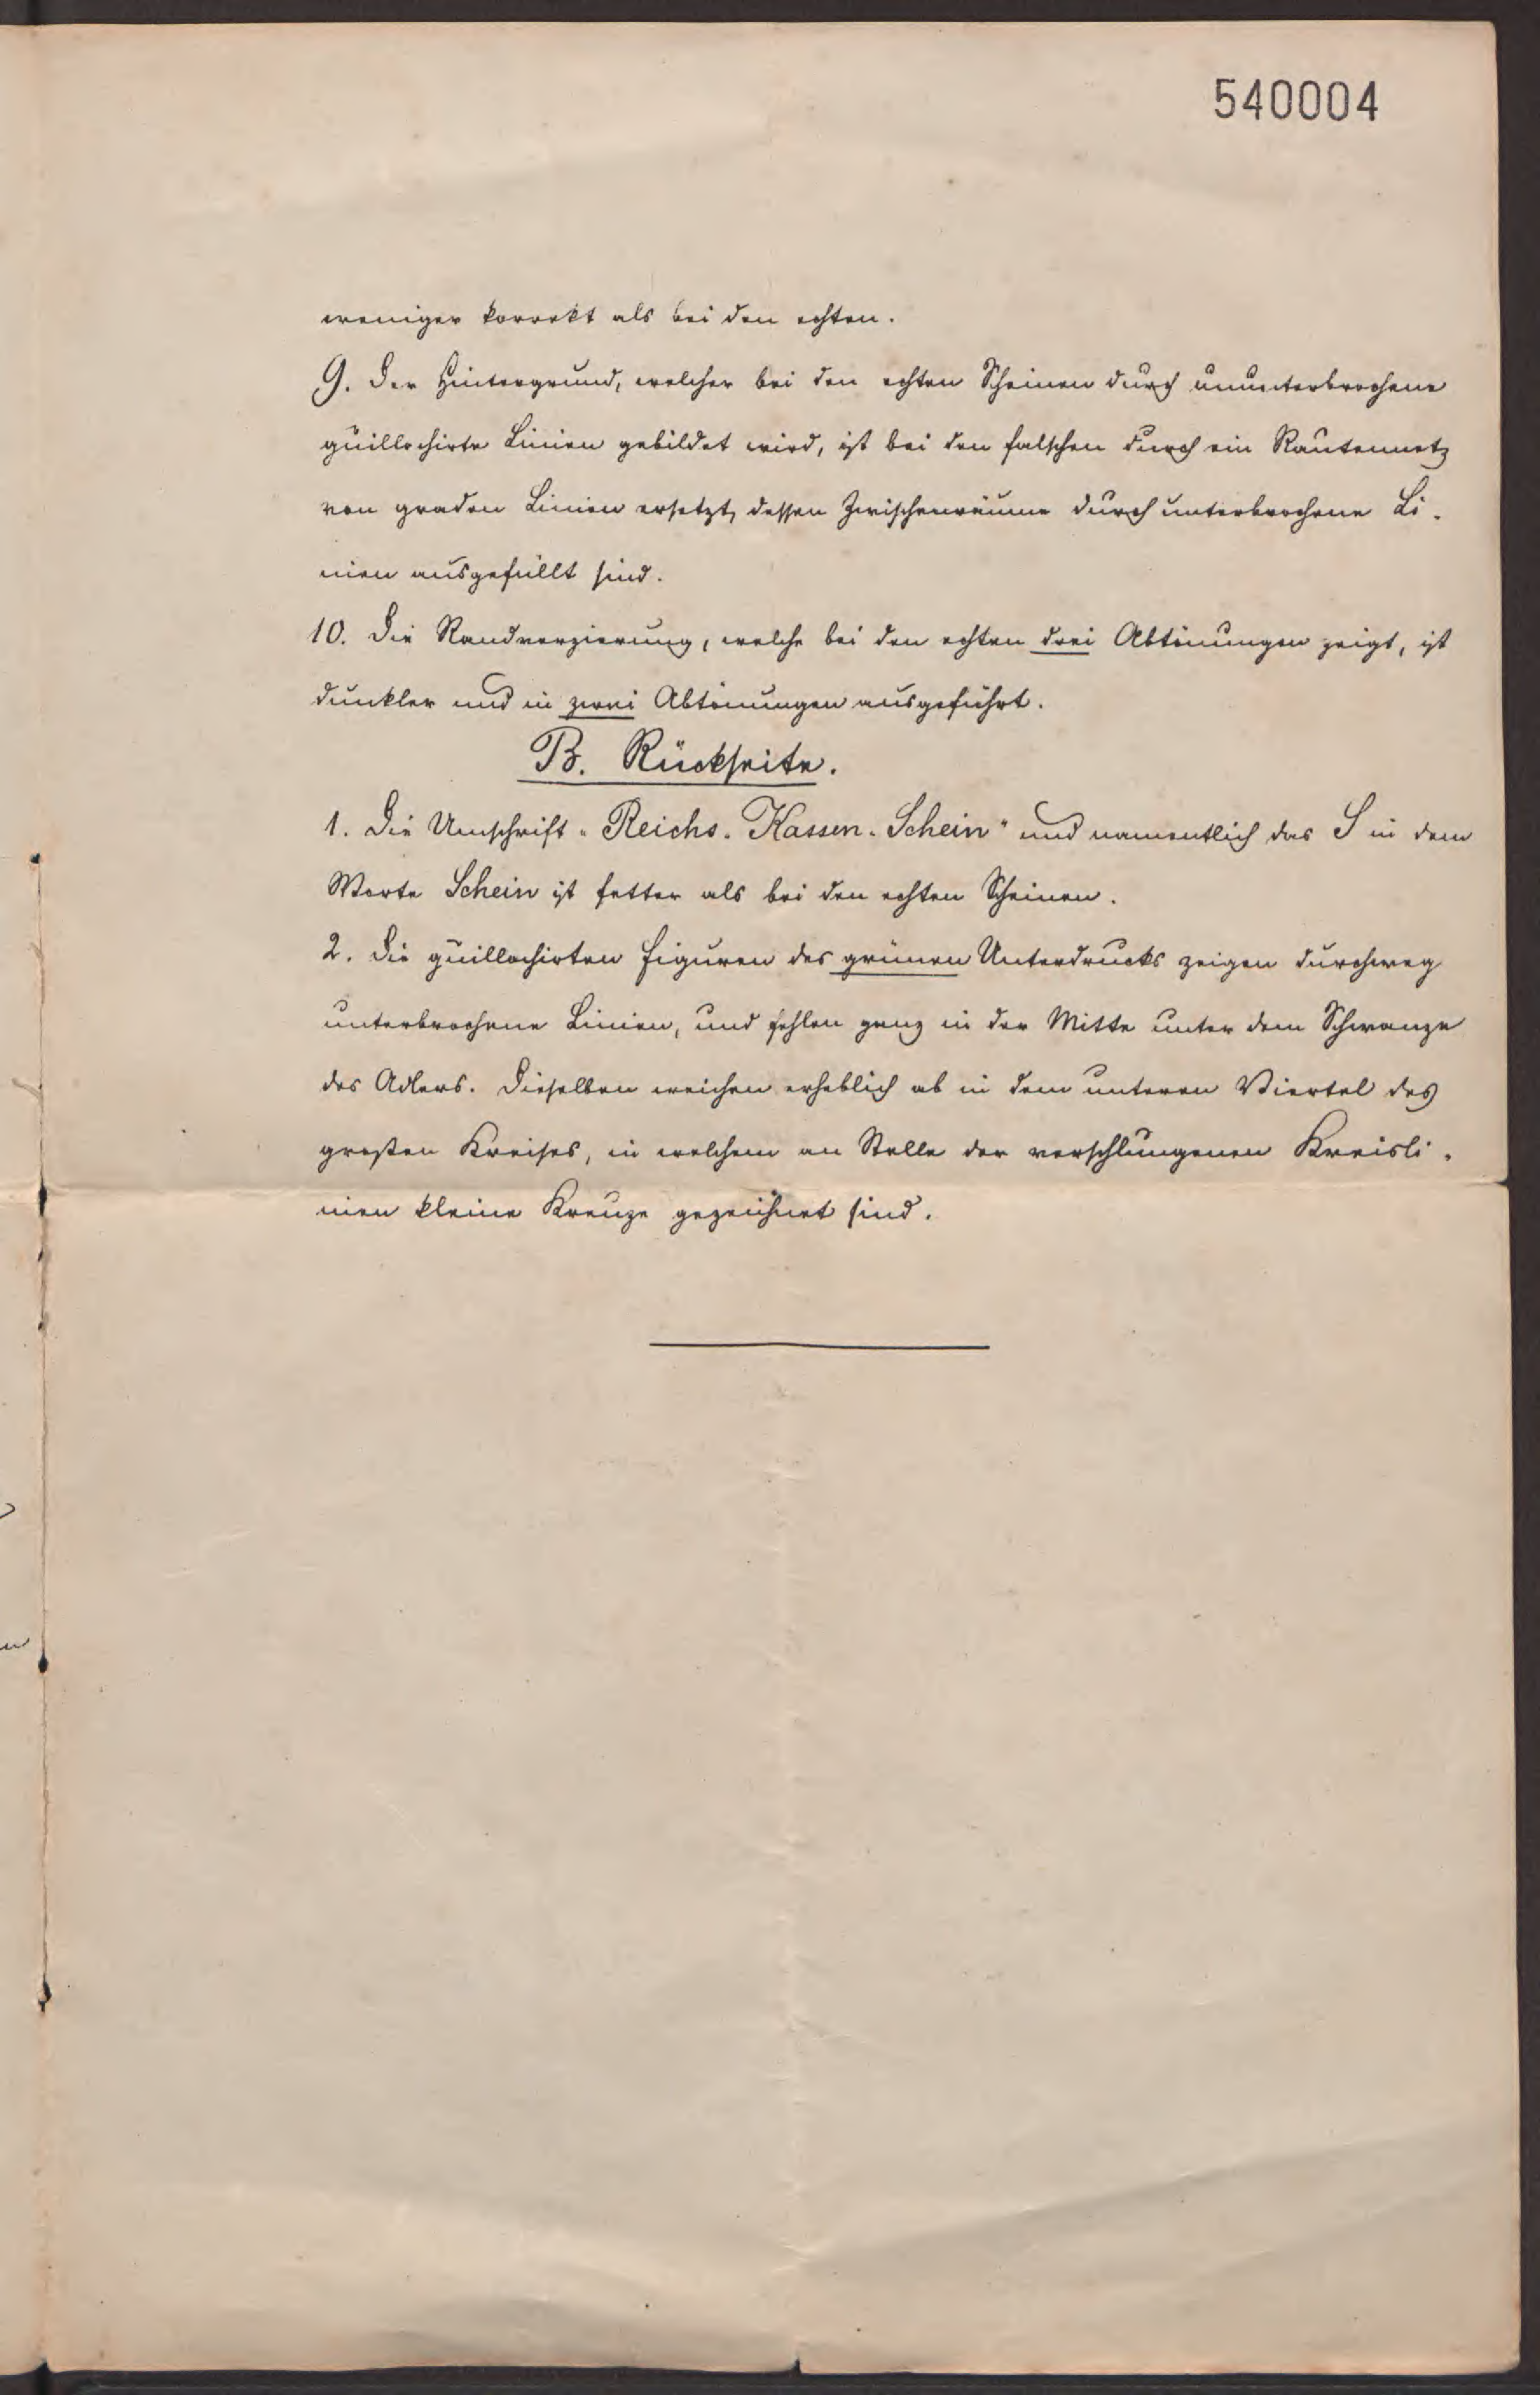 540004
weniger korrekt als bei den echten.
9. Der Hintergrund, welcher bei den echten Scheinen durch ununterbrochene
guillochirte Linien gebildet wird, ist bei den falschen durch ein Rautennetz
von graden Linien ersetzt, dessen Zwischenräume durch unterbrochene Li-
nien ausgefüllt sind.
10. Die Randverzierung, welche bei den echten drei Abtönungen zeigt, ist
dunkler und in zwei Abtönungen ausgeführt.
B. Rückseite.
1. Die Umschrift "Reichs-Kassen-Schein" und namentlich das S in dem
Worte Schein ist fetter als bei den echten Scheinen.
2. Die guillochirten Figuren des grünen Unterdrucks zeigen durchweg
unterbrochene Linien, und fehlen ganz in der Mitte unter dem Schwanze
des Adlers. Dieselben weichen erheblich ab in dem unteren Viertel des
großen Kreises, in welchem an Stelle der verschlungenen Kreisli-
nien kleine Kreuze gezeichnet sind.